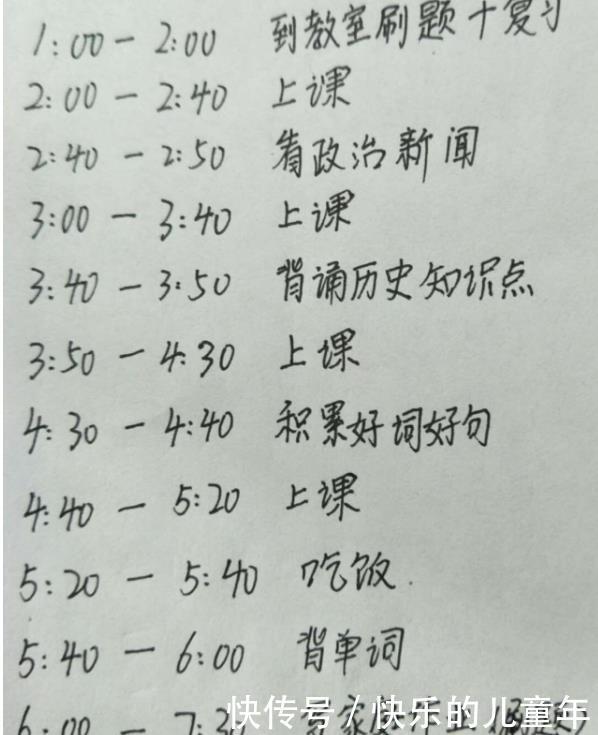 1:00 — 2:00 到教室刷题+复习
2:00 — 2:40 上课
2:40 — 2:50 看政治新闻
3:00 — 3:40 上课
3:40 — 3:50 背诵历史知识点
3:50 — 4:30 上课
4:30 — 4:40 积累好词好句
4:40 — 5:20 上课
5:20 — 5:40 吃饭.
5:40 — 6:00 背单词
6:00 — 7:30
快传号/快乐的儿童年